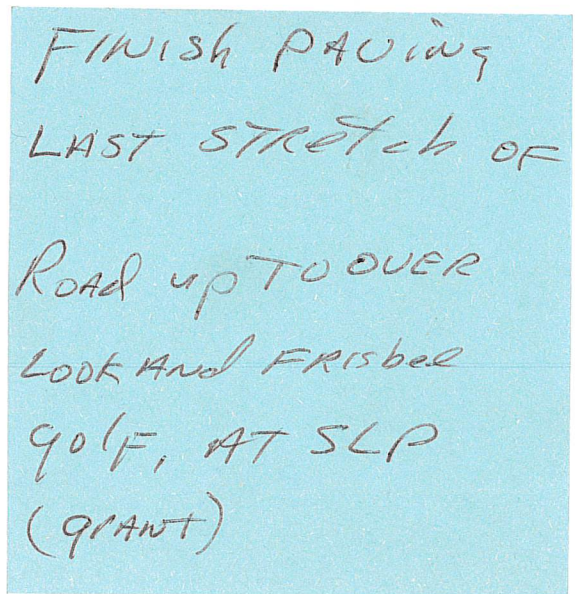 FINISh PAVING
LAST STRetch OF
ROAd up TO OVER
LOOK ANd FRISbee
golF, AT SLP
(grANT)